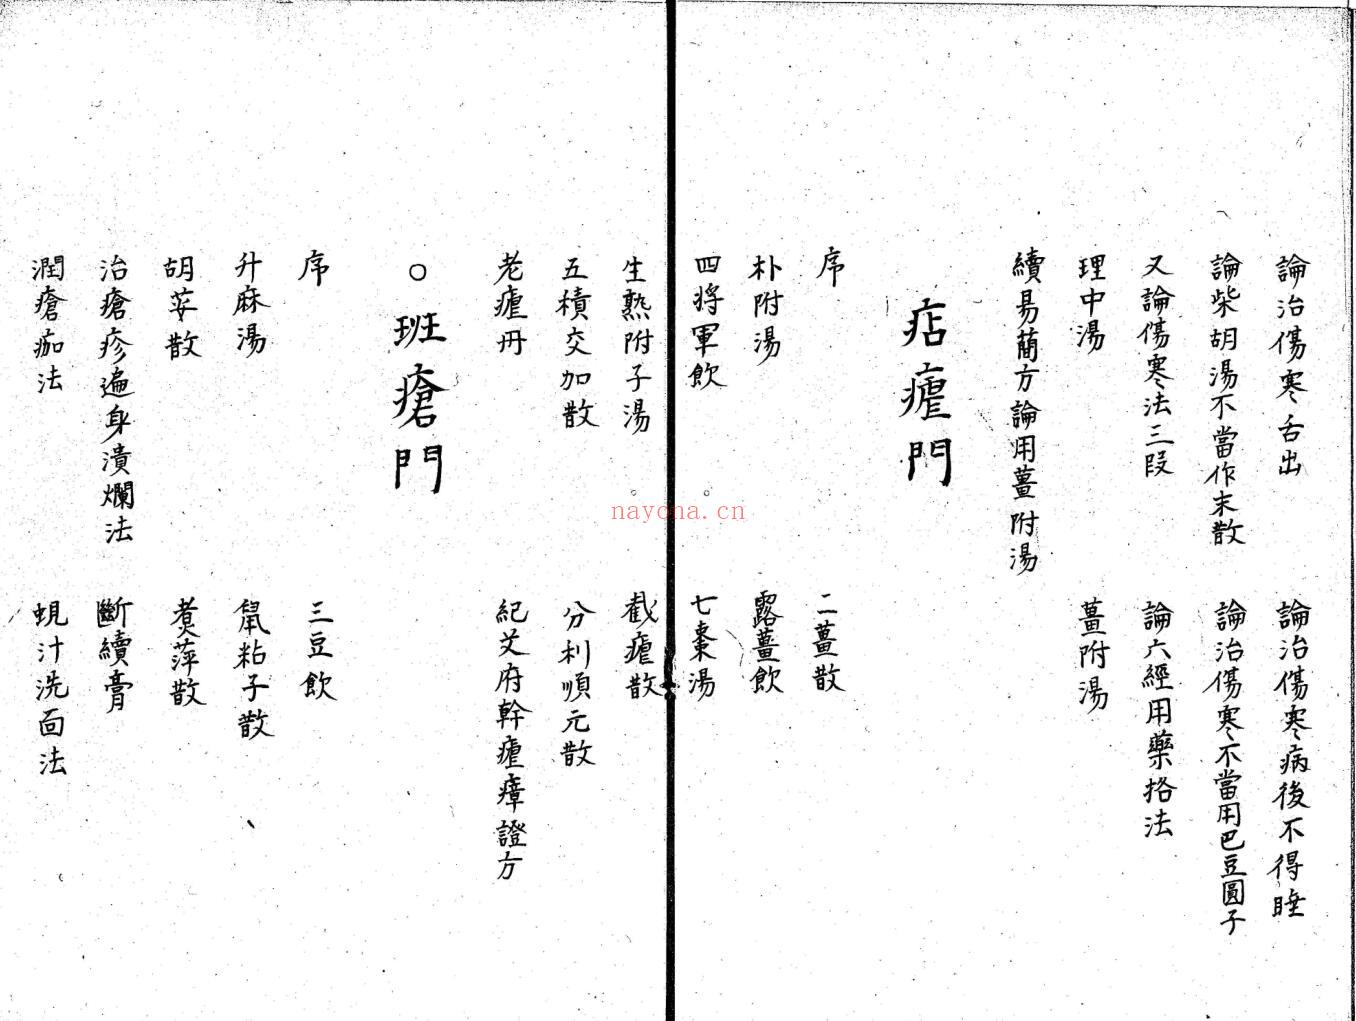 論治傷寒舌出
論治傷寒病後不得睡
論柴胡湯不當作末散
論治傷寒不當用巴豆圓子
又論傷寒法三段
論六經用藥挌法
理中湯
薑附湯
續易蕳方論用薑附湯
痁瘧門
序
二薑散
朴附湯
露薑飲
四將軍飲
七棗湯
生熟附子湯
截瘧散
五積交加散
分利順元散
老瘧丹
紀艾府幹瘧瘴證方
○班瘡門
序
三豆飲
升麻湯
鼠粘子散
胡荽散
煑萍散
治瘡疹遍身潰爛法
斷續膏
潤瘡痂法
蜆汁洗面法
nayona.cn